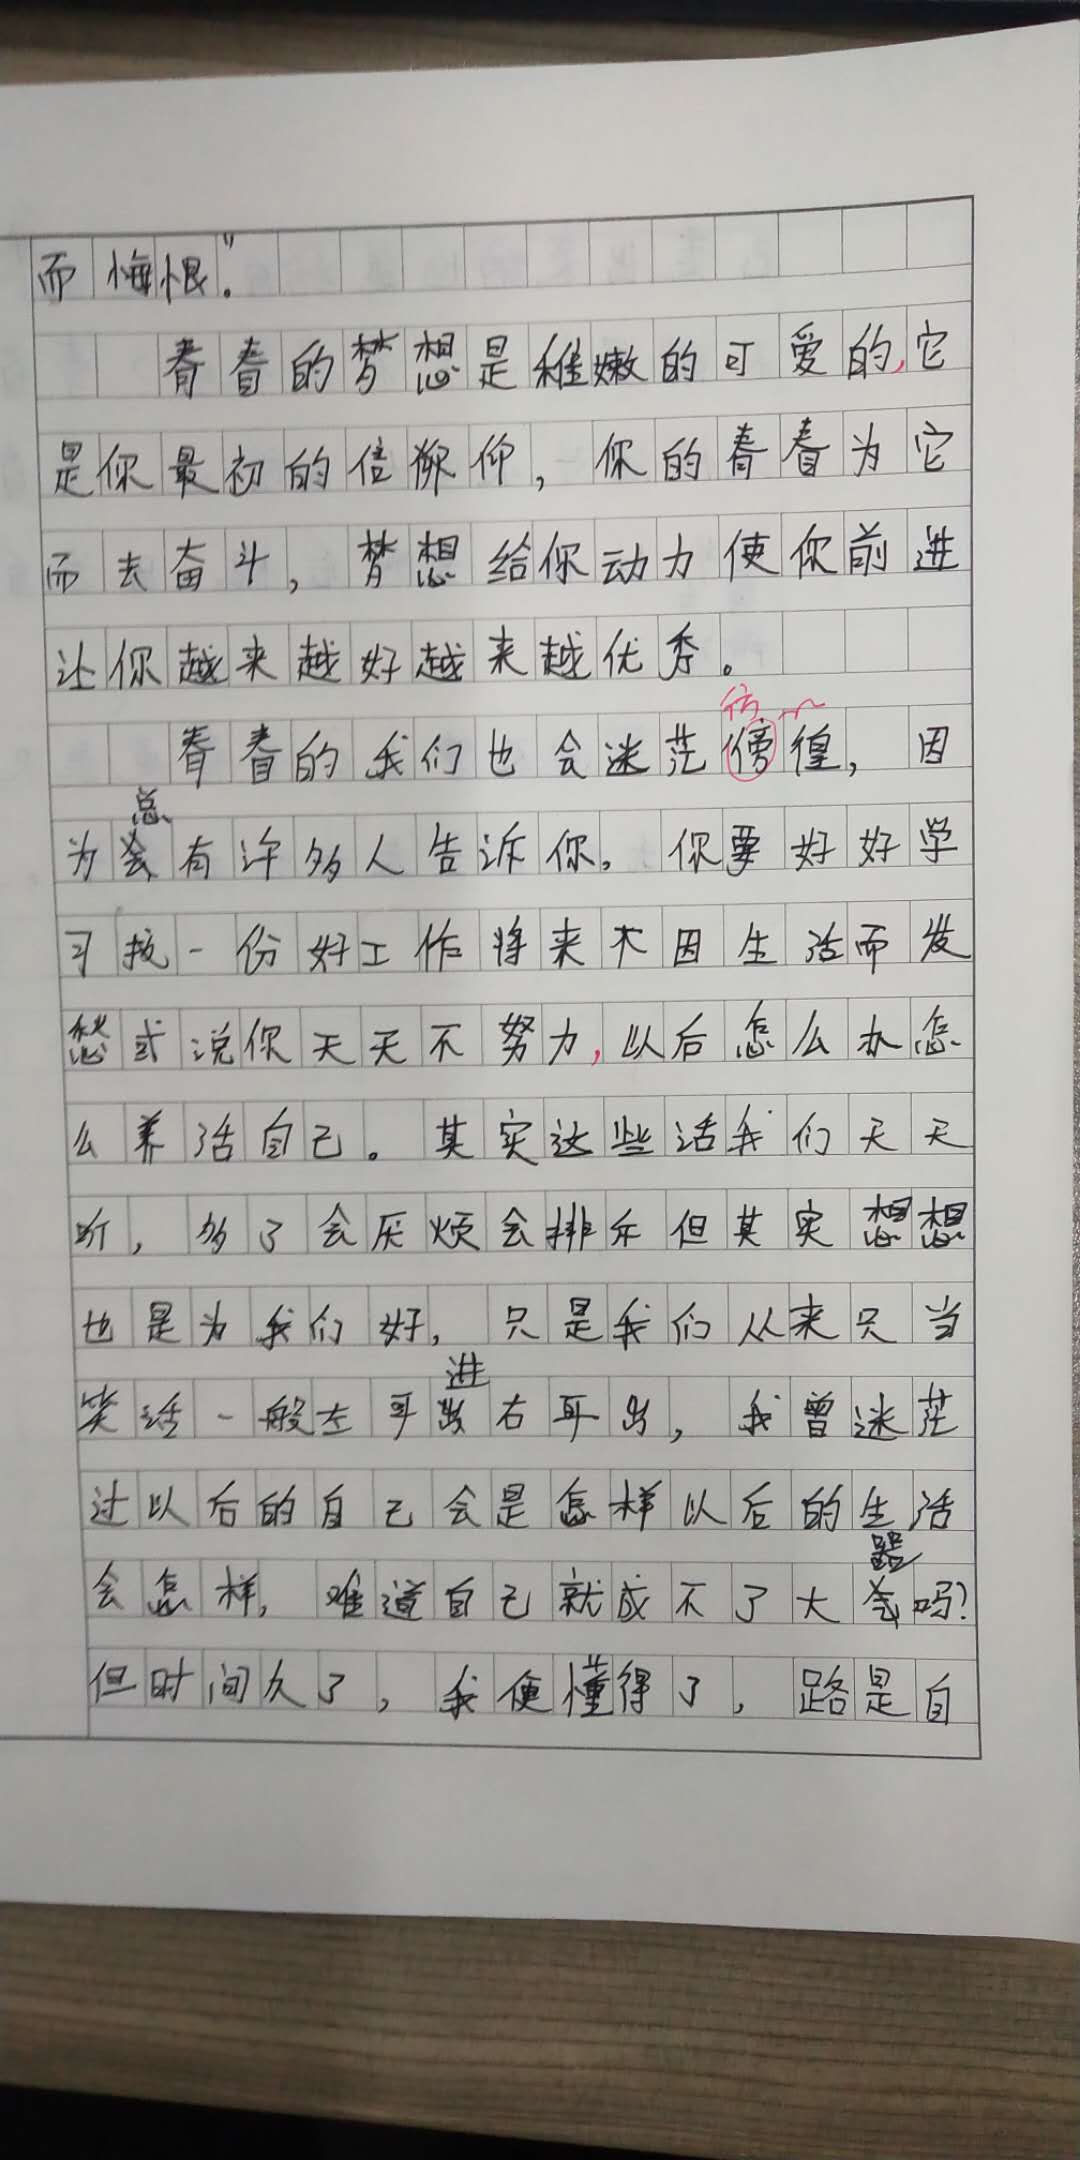 而悔恨。"
青春的梦想是稚嫩的可爱的,它
是你最初的信仰,你的青春为它
而去奋斗,梦想给你动力使你前进
让你越来越好越来越优秀。
彷
青春的我们也会迷茫傍徨,因
总
为会有许多人告诉你,你要好好学
习找一份好工作将来不因生活而发
愁或说你天天不努力,以后怎么办怎
么养活自己。其实这些话我们天天
听,多了会厌烦会排斥但其实想想
也是为我们好,只是我们从来只当
进
笑话一般左耳出右耳出,我曾迷茫
过以后的自己会是怎样以后的生活
器
会怎样,难道自己就成不了大会吗?
但时间久了,我便懂得了,路是自